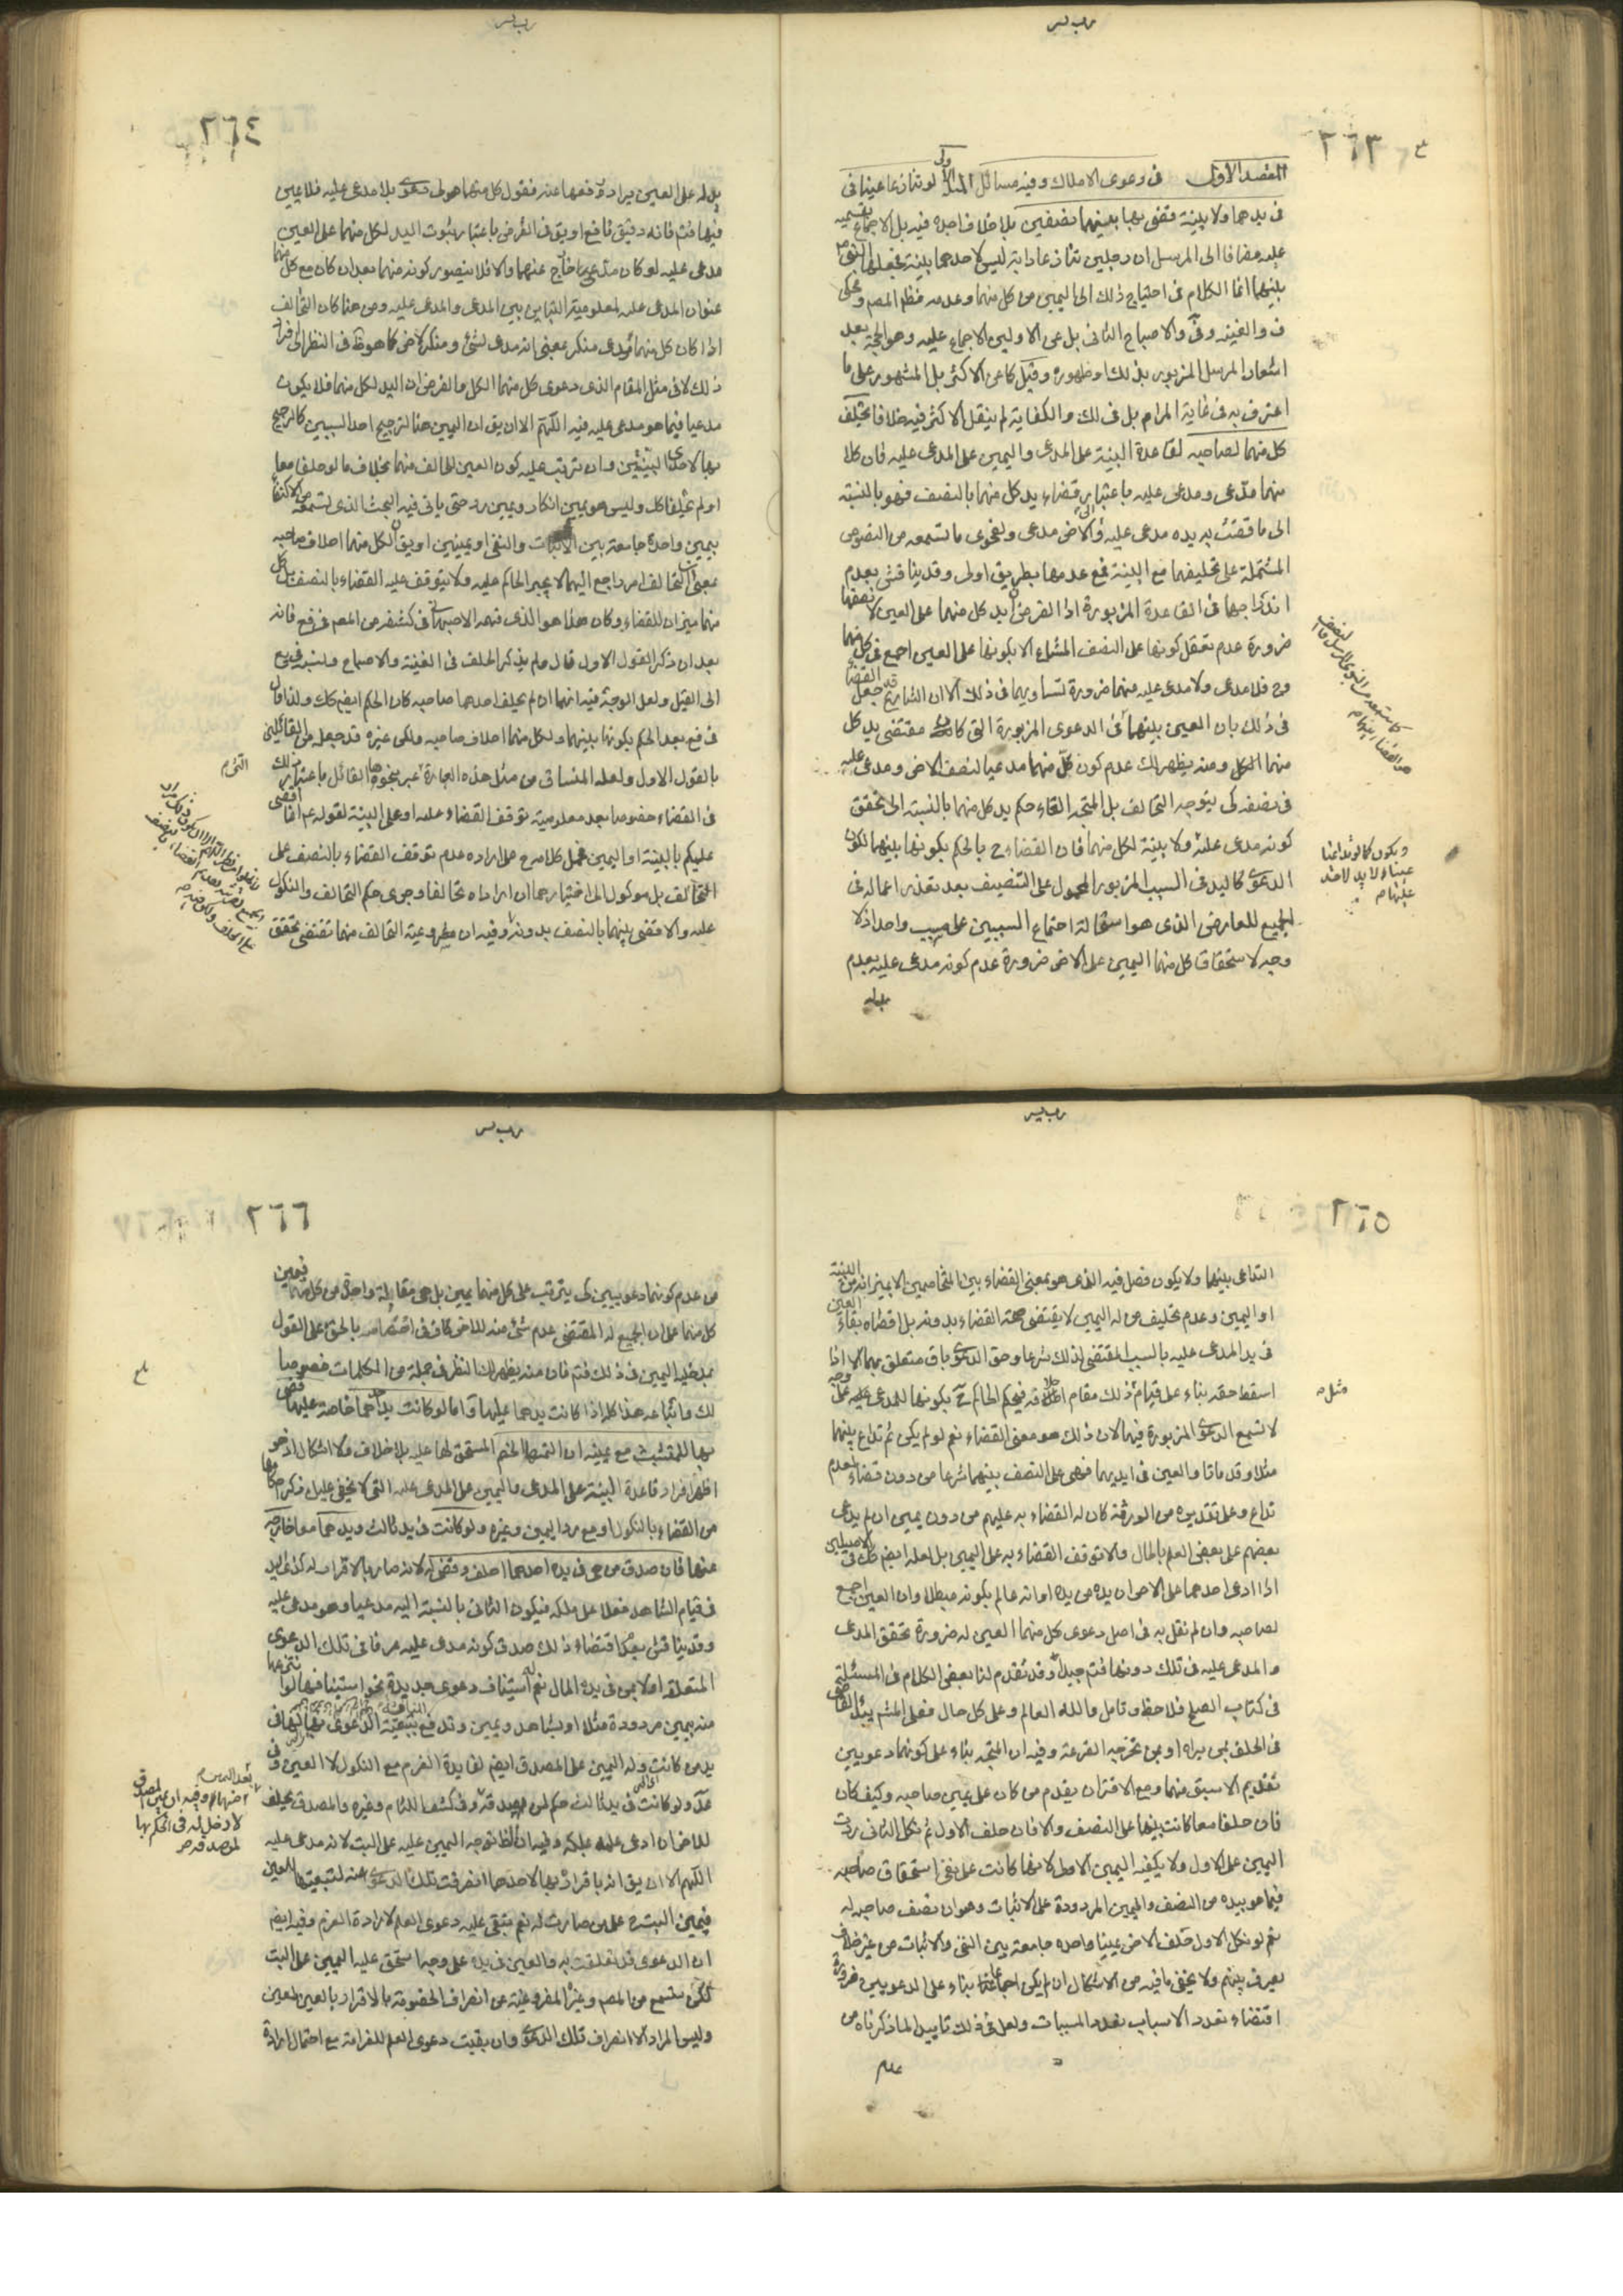 ٢٦٣
المقصد الأول في دعوى الاملاك وفيه مسائل المسئلة الاولى لو تنازعا عينا في
في يدهما ولا بينة قضى بها بينهما نصفين بلا خلاف اجده فيه بل الاجماع بقسميه
عليه مضافا الى المرسل ان رجلين تنازعا دابة ليس لاحدهما بينة فجعلها النبي ص
بينهما انما الكلام في احتياج ذلك الى اليمين من كل منهما وعدمه فظاهر المصم ومحكى
ف والغنية والاصباح الثاني بل عن الاولين الاجماع عليه وهو الحجة بعد
اشعار المرسل المزبور بذلك او ظهوره وقيل كما عن الاكثر بل المشهور على ما
اعترف به في غاية المرام بل في لك والكفاية لم ينقل الاكثر فيه خلافا يحلف
كل منهما لصاحبه لقاعدة البينة على المدعى واليمين على المدعى عليه فان كلا
منهما مدعى ومدعى عليه باعتبار قضاء يد كل منهما بالنصف فهو بالنسبة
الى ما قضت به يده مدعى عليه والاخر مدعى ولفحوى ما تسمعه من النصوص
المشتملة على تحليفهما مع البينة فمع عدمها بطريق اولى وقد يناقش بعدم
اندراجهما في القاعدة المزبورة اذا الفرض ان يد كل منهما على العين لا نصفها
ضرورة عدم تعقل كونها على النصف المشاع الا بكونها على العين اجمع في كل منهما
وح فلا مدعى ولا مدعى عليه منهما ضرورة تساويهما في ذلك الا ان الشارع قد جعل القضاء
في ذلك بان العين بينهما في الدعوى المزبورة التي كان مقتضى يد كل
منهما الكل ومنه يظهر لك عدم كون كل منهما مدعيا لنصف الاخر ومدعى عليه
في نصفه كي يتوجه التحالف بل المتجه الغاء حكم يد كل منهما بالنسبة الى تحقق
كونه مدعى عليه ولا بينة لكل منهما فان القضاء ح بالحكم بكونها بينهما لكون
الدعوى كاليد في السبب المزبور المحمول على التنصيف بعد تعذر اعماله في
الجميع للمعارض الذي هو استحالة اجتماع السببين على مسبب واحد اذ لا
وجه لاستحقاق كل منهما اليمين على الاخر ضرورة عدم كونه مدعى عليه بعدم
ويكون كما لو تداعيا
عينا ولا يد لاحد
عليها
٢٦٤
يد له على العين يراد رفعها عنه فنقول كل منهما هو لي دعوى بلا مدعى عليه فلا يمين
فيها فتم فانه دقيق نافع او يق في الفرض باعتبار ثبوت اليد لكل منهما على العين
مدعى عليه لو كان مدعى خارج عنهما والا فلا يتصور كونه منهما بعد ان كان مع كل منهما
عنوان المدعى عليه لمعلومية التباين بين المدعى والمدعى عليه ومن هنا كان التحالف
اذا كان كل منهما مدعى منكر بمعنى انه مدعى لشئ ومنكر لاخر كما هو ظ في النظر الى افراد
ذلك لا في مثل المقام الذي دعوى كل منهما الكل والفرض ان اليد لكل منهما فلا يكون
مدعيا فيما هو مدعى عليه فيه اللهم الا ان يق ان اليمين هنا لترجيح احد السببين كالترجيح
بها لاحدى البينتين وان ترتب عليه كون العين للحالف منهما بخلاف ما لو حلفا معا
او لم يحلفا كل وليس هو يمين انكار ويمين رد حتى ياتي فيه البحث الذي تسمعه من الاكتفاء
بيمين واحدة جامعة بين الاثبات والنفي او يمينين او يق ان لكل منهما احلاف صاحبه
بمعنى ان التحالف امر راجع اليهما لا يجبر الحاكم عليه ولا يتوقف عليه القضاء بالنصف
منهما ميزان للقضاء وكان هذا هو الذي فهمه الاصبهاني في كشفه من المصم في فع فانه
بعد ان ذكر القول الاول قال ولم يذكر الحلف في الغنية والاصباح ونسبه في يع
الى القيل ولعل الوجه فيه انهما ان لم يحلف احدهما صاحبه كان الحكم ايضم كك ولذا قال
في فع بعد الحكم بكونها بينهما ولكل منهما احلاف صاحبه ولكن غيره قد جعله من القائلين
بالقول الاول ولعله المنساق من مثل هذه العبارة
في القضاء خصوصا بعد معلومية توقف القضاء عليه او على البينة لقوله ع انما اقضى
عليكم بالبينة واليمين على ارادة عدم توقف القضاء بالنصف على
التحالف بل موكول الى اختيارهما ان اراداه تحالفا وجرى حكم التحالف والنكول
عليه والا قضى بينهما بالنصف بدونه وفيه ان مشروعية التحالف منهما تقتضى تحقق
٢٦٥
التداعى بينهما ولا يكون فصل فيه الذي هو بمعنى القضاء بين المتخاصمين الا بميزانه من البينة
او اليمين وعدم تحليف من له اليمين لا يقتضى صحة القضاء بدونه بل اقصاه بقاء العين
في يد المدعى عليه بالسبب المقتضى لذلك شرعا وحق الدعوى باق متعلق بهما الا اذا
اسقط حقه بناء على قيام ذلك مقام احلافه فيحكم الحاكم ح بكونها للمدعى عليه على وجه
لا تسمع الدعوى المزبورة فيها لان ذلك هو معنى القضاء نعم لو لم يكن ثم تداع بينهما
مثلا وقد ماتا والعين في ايديهما فهى على النصف بينهما شرعا من دون قضاء لعدم
تداع وعلى تقديره من الورثة كان له القضاء به عليهم من دون يمين ان لم يدعى
بعضهم على بعض العلم بالحال والا توقف القضاء به على اليمين بل لعله ايضم كك في الاصيلين
اذا ادعى احدهما على الاخر ان يده من يده او انه عالم بكونه مبطلا وان العين اجمع
لصاحبه وان لم نقل به في اصل دعوى كل منهما العين له ضرورة تحقق المدعى
والمدعى عليه في تلك دونها فتم جيدا وقد تقدم لنا بعض الكلام في المسئلة
في كتاب الصلح فلاحظ وتامل والله العالم وعلى كل حال فعلى المشم يبدء القاضى
في الحلف بمن يراه او بمن تخرجه القرعة وفيه ان المتجه بناء على كونهما دعويين
تقديم الاسبق منهما ومع الاقتران يقدم من كان على يمين صاحبه وكيف كان
فان حلفا معا كانت بينهما على النصف والا فان حلف الاول ثم نكل الثاني ردت
اليمين على الاول ولا يكفيه اليمين الاولى لانها كانت على نفى استحقاق صاحبه
فيما هو بيده من النصف واليمين المردودة على الاثبات وهو ان نصف صاحبه له
نعم لو نكل الاول حلف الاخر يمينا واحدة جامعة بين النفى والاثبات من غير خلاف
يعرف بينهم ولا يخفى ما فيه من الاشكال ان لم يكن اجماعا بناء على الدعويين ضرورة
اقتضاء تعدد الاسباب تعدد المسببات ولعل في ذلك تاييدا لما ذكرناه من
عدم
٢٦٦
من عدم كونهما دعويين كي يترتب على كل منهما يمين بل هي مقابلة واحدة من كل منهما فيمين
كل منهما على ان الجميع له المقتضى عدم شئ منه للاخر كاف في اختصامه بالحق على القول
بمدخلية اليمين في ذلك فتم فان منه يظهر لك النظر في جملة من الكلمات خصوصا
لك واتباعه هذا كله اذا كانت يدهما عليها واما لو كانت يد احدهما خاصة عليها قضى
بها للمتشبث مع يمينه ان التمسها الخصم المستحق لها عليه بلا خلاف ولا اشكال اذ هو
اظهر افراد قاعدة البينة على المدعى واليمين على المدعى عليه التي لا يخفى عليك ذكر احكامها
من القضاء بالنكول او مع رد اليمين وغيره ولو كانت في يد ثالث ويدهما معا خارجة
عنها فان صدق من هي في يده احدهما احلف وقضى له لانه صار بالاقرار له كذى اليد
في قيام الشاهد فعلا على ملكه فيكون الثاني بالنسبة اليه مدعيا وهو مدعى عليه
وقد يناقش بعدم اقتضاء ذلك صدق كونه مدعى عليه عرفا في تلك الدعوى
المتعلقة اولا بمن في يده المال نعم له استيناف دعوى جديدة نحو استينافها لو انتزعها
منه بيمين مردودة مثلا او بشاهد ويمين وقد يدفع بتبعية الدعوى
يد من كانت وله اليمين على المصدق ايضم لفايدة الغرم مع النكول لا العين في
عد ولو كانت في يد ثالث حكم لمن يصدقه وفي كشف اللثام وغيره والمصدق يحلف
للاخر ان ادعى علمه بملكه وفيه ان الظ توجه اليمين عليه على البت لانه مدعى عليه
اللهم الا ان يق انه باقراره بها لاحدهما انصرفت تلك الدعوى عنه لتبعيتها للعين
فيمين البت على من صارت له نعم تبقى عليه دعوى العلم لارادة الغرم وفيه ايضم
ان الدعوى قد تعلقت به والعين في يده على وجه استحق عليه اليمين على البت
لكن ستسمع من المصم وغيره المفروغية عن انصراف الخصومة بالاقرار بالعين لمعين
وليس المراد الا انصراف تلك الدعوى وان بقيت دعوى العلم للغرامة مع احتمال ارادة
لا دخل له في الحكم بها
لمن صدقه